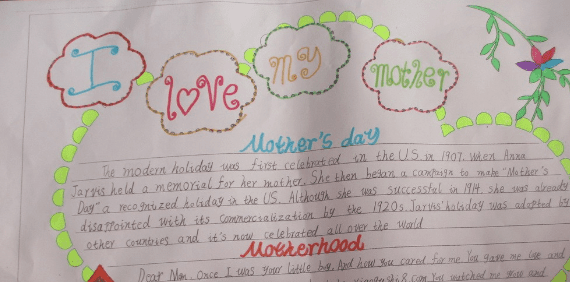 I love my mother
Mother's day
The modern holiday was first celebrated in the U.S. in 1907. when Anna
Jarvis held a memorial for her mother. She then began a campaign to make "Mother's
Day" a recognized holiday in the US. Although she was successful in 1914. she was already
disappointed with its commercialization by the 1920s. Jarvis' holiday was adopted by
other countries and it's now celebrated all over the world
Motherhood
Dear Mom. Once I was your little boy. And how you cared for me You gave me love and
You watched me grow and